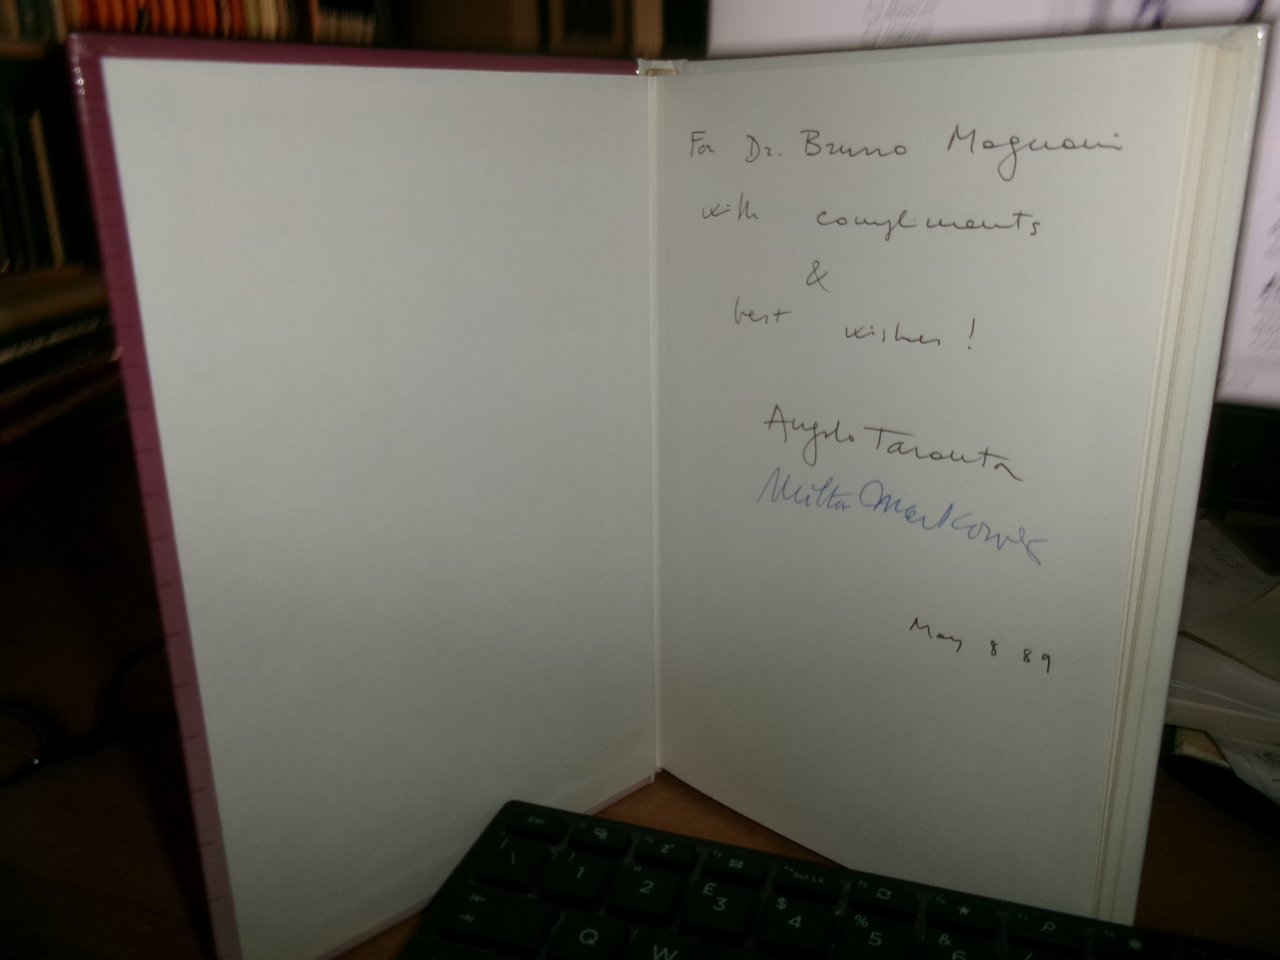 For Dr. Bruno Magnani
with compliments
&
best wishes!
Angelo Taranta
Milton Markowitz
May 8 89
Esc
Scr Lk
| \ ! 1 " 2 £ 3 $ 4 % 5 & 6
Q W